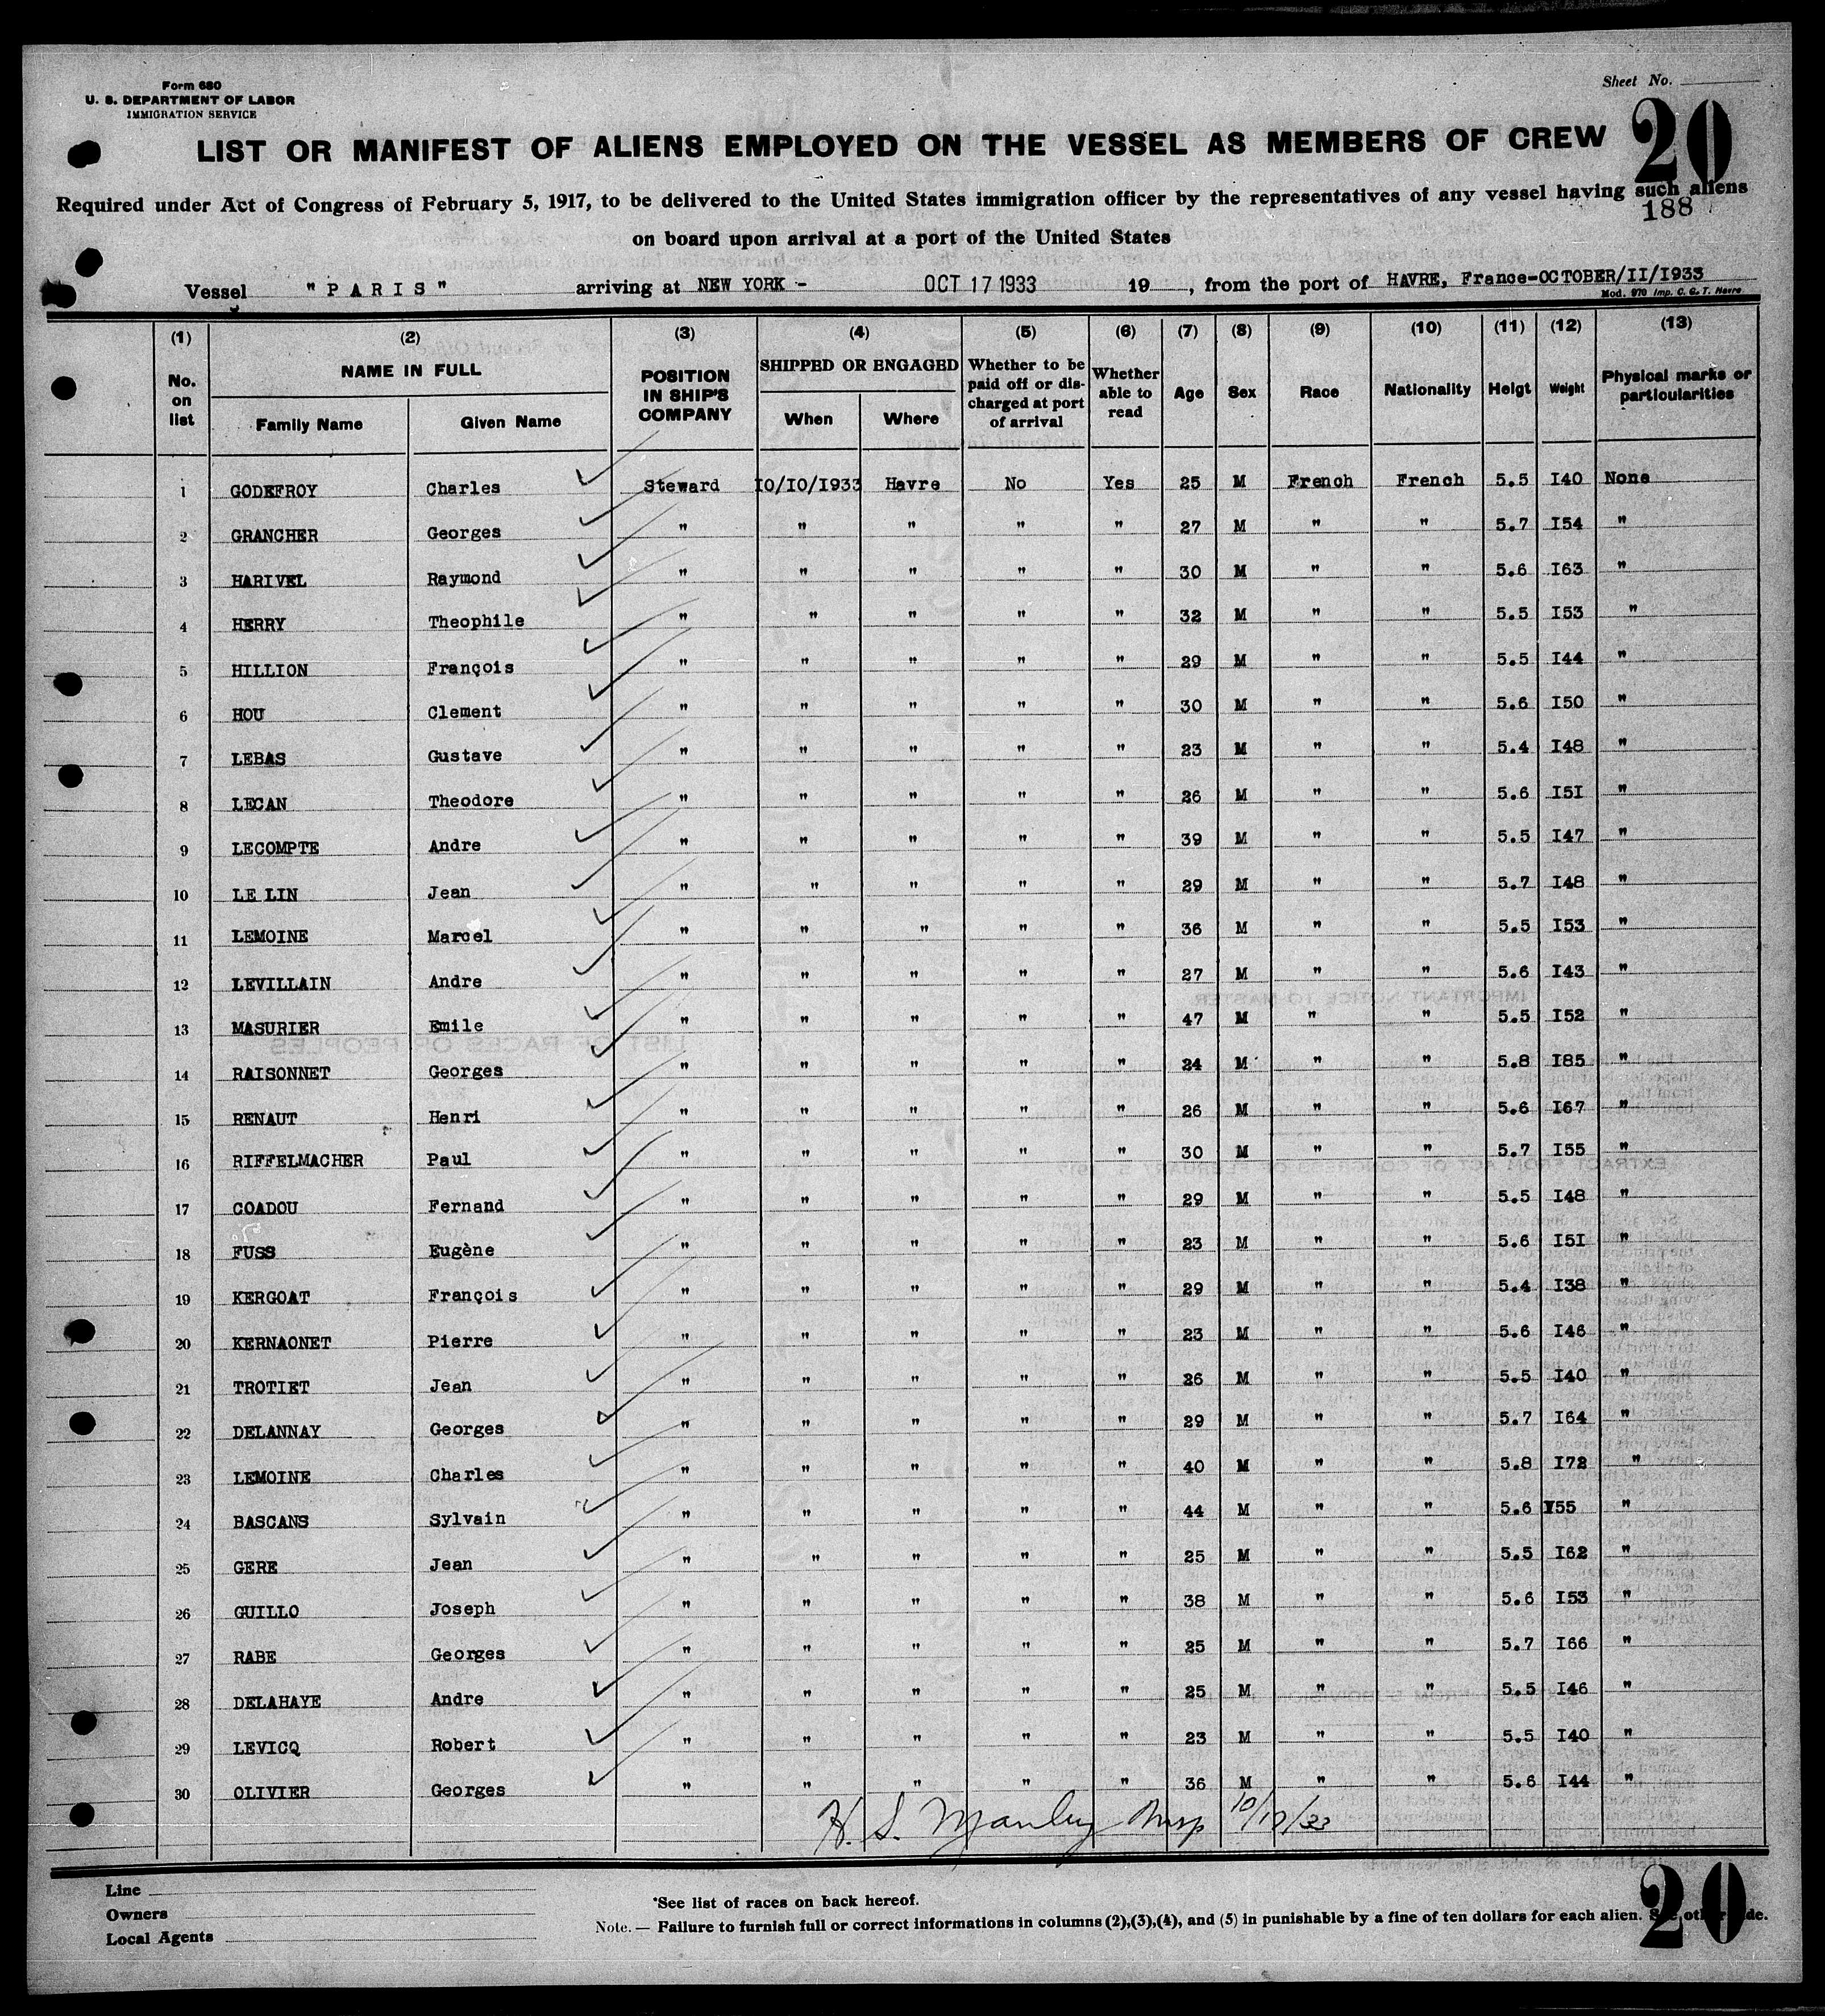 Form 680
U. S. DEPARTMENT OF LABOR
IMMIGRATION SERVICE
Sheet No.
20
LIST OR MANIFEST OF ALIENS EMPLOYED ON THE VESSEL AS MEMBERS OF CREW
Required under Act of Congress of February 5, 1917, to be delivered to the United States immigration officer by the representatives of any vessel having such aliens
188
on board upon arrival at a port of the United States
Vessel "PARIS" arriving at NEW YORK - OCT 17 1933 19 , from the port of HAVRE, France-OCTOBER/II/1933
Mod. 970 Imp. C. G. T. Havre
(1) (2) (3) (4) (5) (6) (7) (8) (9) (10) (11) (12) (13)
No. on list NAME IN FULL Family Name Given Name POSITION IN SHIP'S COMPANY SHIPPED OR ENGAGED When Where Whether to be paid off or discharged at port of arrival Whether able to read Age Sex Race Nationality Heigt Weight Physical marks or particularities
1 GODEFROY Charles Steward 10/10/1933 Havre No Yes 25 M French French 5.5 I40 None
2 GRANCHER Georges " " " " " 27 M " " 5.7 I54 "
3 HARIVEL Raymond " " " " " 30 M " " 5.6 I63 "
4 HERRY Theophile " " " " " 32 M " " 5.5 I53 "
5 HILLION François " " " " " 29 M " " 5.5 I44 "
6 HOU Clement " " " " " 30 M " " 5.6 I50 "
7 LEBAS Gustave " " " " " 23 M " " 5.4 I48 "
8 LECAN Theodore " " " " " 26 M " " 5.6 I5I "
9 LECOMPTE Andre " " " " " 39 M " " 5.5 I47 "
10 LE LIN Jean " " " " " 29 M " " 5.7 I48 "
11 LEMOINE Marcel " " " " " 36 M " " 5.5 I53 "
12 LEVILLAIN Andre " " " " " 27 M " " 5.6 I43 "
13 MASURIER Emile " " " " " 47 M " " 5.5 I52 "
14 RAISONNET Georges " " " " " 24 M " " 5.8 I85 "
15 RENAUT Henri " " " " " 26 M " " 5.6 I67 "
16 RIFFELMACHER Paul " " " " " 30 M " " 5.7 I55 "
17 COADOU Fernand " " " " " 29 M " " 5.5 I48 "
18 FUSS Eugène " " " " " 23 M " " 5.6 I5I "
19 KERGOAT François " " " " " 29 M " " 5.4 I38 "
20 KERNAONET Pierre " " " " " 23 M " " 5.6 I46 "
21 TROTIET Jean " " " " " 26 M " " 5.5 I40 "
22 DELANNAY Georges " " " " " 29 M " " 5.7 I64 "
23 LEMOINE Charles " " " " " 40 M " " 5.8 I72 "
24 BASCANS Sylvain " " " " " 44 M " " 5.6 I55 "
25 GERE Jean " " " " " 25 M " " 5.5 I62 "
26 GUILLO Joseph " " " " " 38 M " " 5.6 I53 "
27 RABE Georges " " " " " 25 M " " 5.7 I66 "
28 DELAHAYE Andre " " " " " 25 M " " 5.5 I46 "
29 LEVICQ Robert " " " " " 23 M " " 5.5 I40 "
30 OLIVIER Georges " " " " " 36 M " " 5.6 I44 "
H. S. Manley Insp 10/17/33
Line
Owners
Local Agents
*See list of races on back hereof.
Note. — Failure to furnish full or correct informations in columns (2),(3),(4), and (5) in punishable by a fine of ten dollars for each alien. See other side.
20